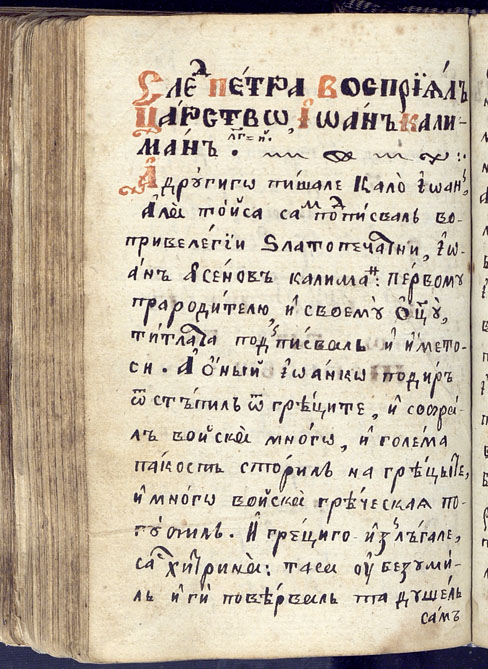 Слеⷣ петра воспрїѧлъ
царство, іѡанъ кали-
манъ.
А дрꙋгигѡ пишале Кало іѡанъ,
Але тойса саⷨ поⷣписвалъ во-
привелегїи златопечатни, іѡ-
анъ Ясеновъ калимаⷩ: первомꙋ
прародителю, и своемꙋ ѻц҃ꙋ,
титлата подписвалъ и името-
си. А ѻный іѡанкѡ подиръ
ѿстꙋпилъ ѿ грѣците, и собра-
лъ войска многѡ, и голема
пакость сторилъ на грѣцыте,
и многѡ войска грѣческаѧ по-
гꙋбилъ. И грециго излъгале,
саⷭ хитрина: таса ѹбезꙋми-
лъ и ги повѣрвалъ та дꙋшелъ
самъ